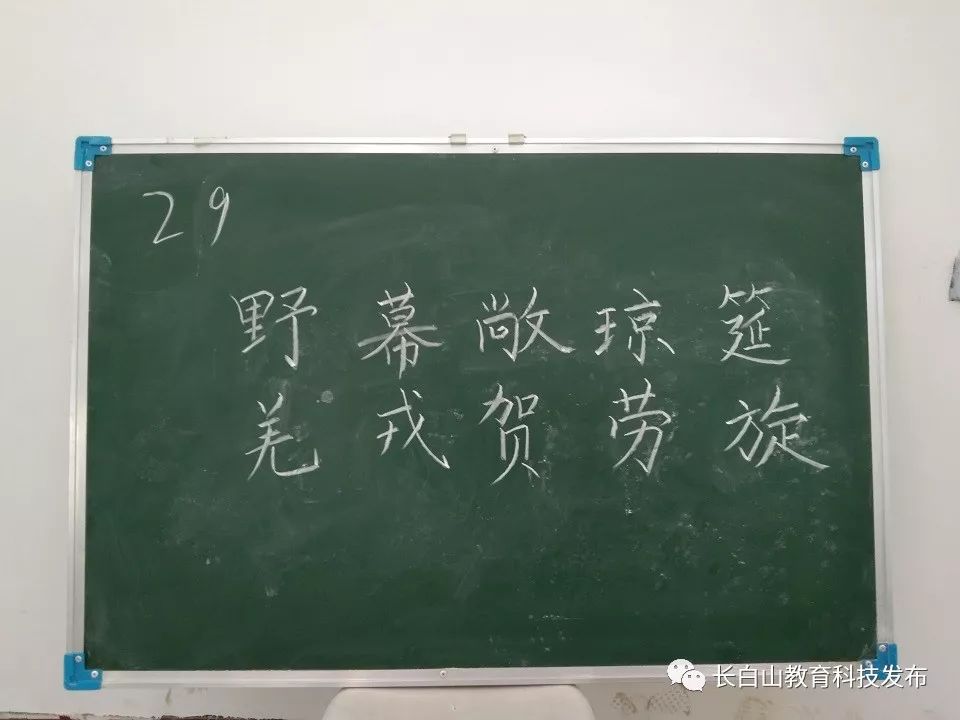 29
野幕敞琼筵
羌戎贺劳旋
长白山教育科技发布